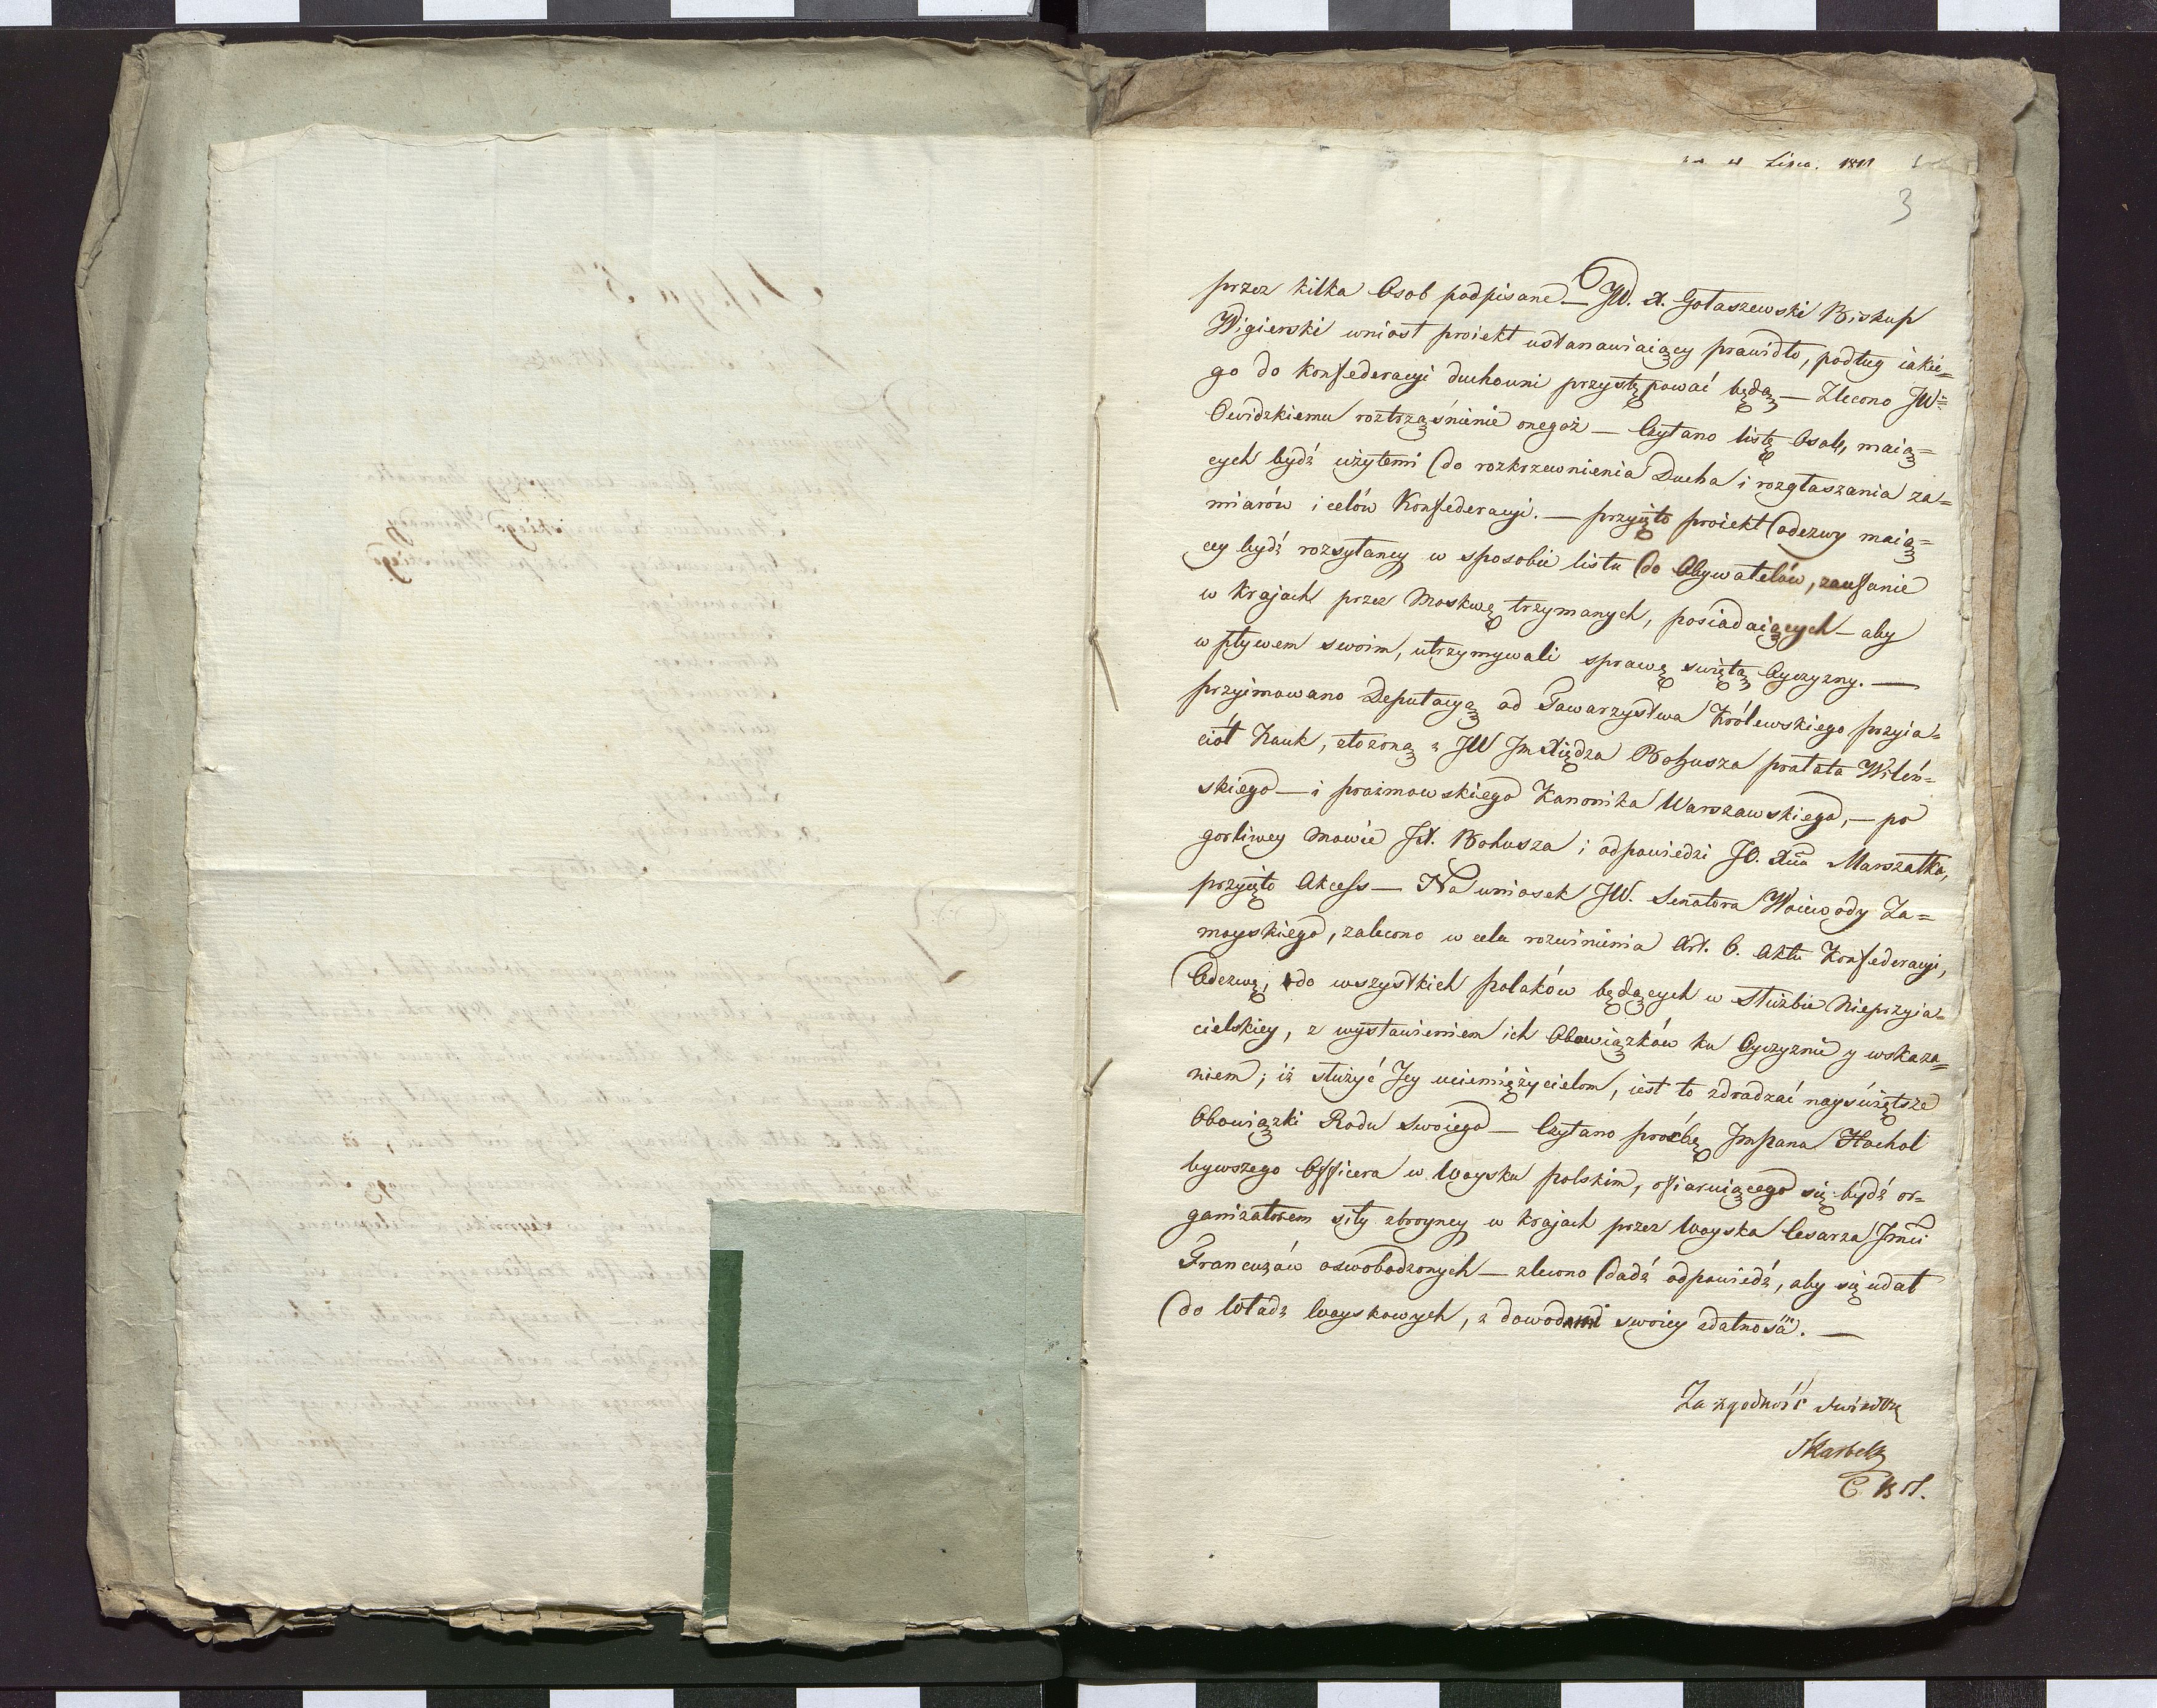 Lipca. 1812
3
przez kilka Osob podpisane — JW. X. Gołaszewski Biskup
Wigierski wniosł proiekt ustanawiaiący prawidło, podług iakie=
go do Konfederacyi duchowni przystępować będą — Zlecono JW=
Owidzkiemu roztrząśnienie onegoż — Czytano listę Osob, maią=
cych bydź użytemi do rozkrzewnienia Ducha i rozgłaszania za=
miarów i celów Konfederacyi. — przyięto proiekt odezwy maią=
cey bydź rozsyłaney w sposobie listu do Obywatelów, zaufanie
w krajach przez Moskwę trzymanych, posiadaiących — aby
wpływem swoim, utrzymywali sprawę świętą Oyczyzny. —
przyimowano Deputacyą od Towarzystwa Królewskiego przyia=
ciół Nauk, złożoną z JW JmXiędza Bohusza prałata Wileń=
skiego — i prażmowskiego Kanonika Warszawskiego, — po
gorliwey mowie JX. Bohusza i odpowiedzi JO. Xcia Marszałka,
przyięto Akcess — Na wniosek JW. Senatora Woiewody Za=
moyskiego, zalecono w celu rozwinienia Art. 6. Aktu Konfederacyi,
Odezwę, do wszystkich polaków będących w służbie Nieprzyia=
cielskiey, z wystawieniem ich Obowiązków ku Oyczyznie y wskaza=
niem; iż służyć Jey uciemiężycielom, iest to zdradzać nayświętsze
Obowiązki Rodu swoiego — Czytano proźbę Jmpana Hochol
bywszego Officera w Woysku polskim, ofiaruiącego się bydź or=
ganizatorem siły zbroyney w krajach przez Woyska Cesarza Jmci
Francuzów oswobodzonych — zlecono dadź odpowiedź, aby się udał
do Władz Woyskowych, z dowodami swoiey zdatności. —
Za zgodność świadczę
Skarbek